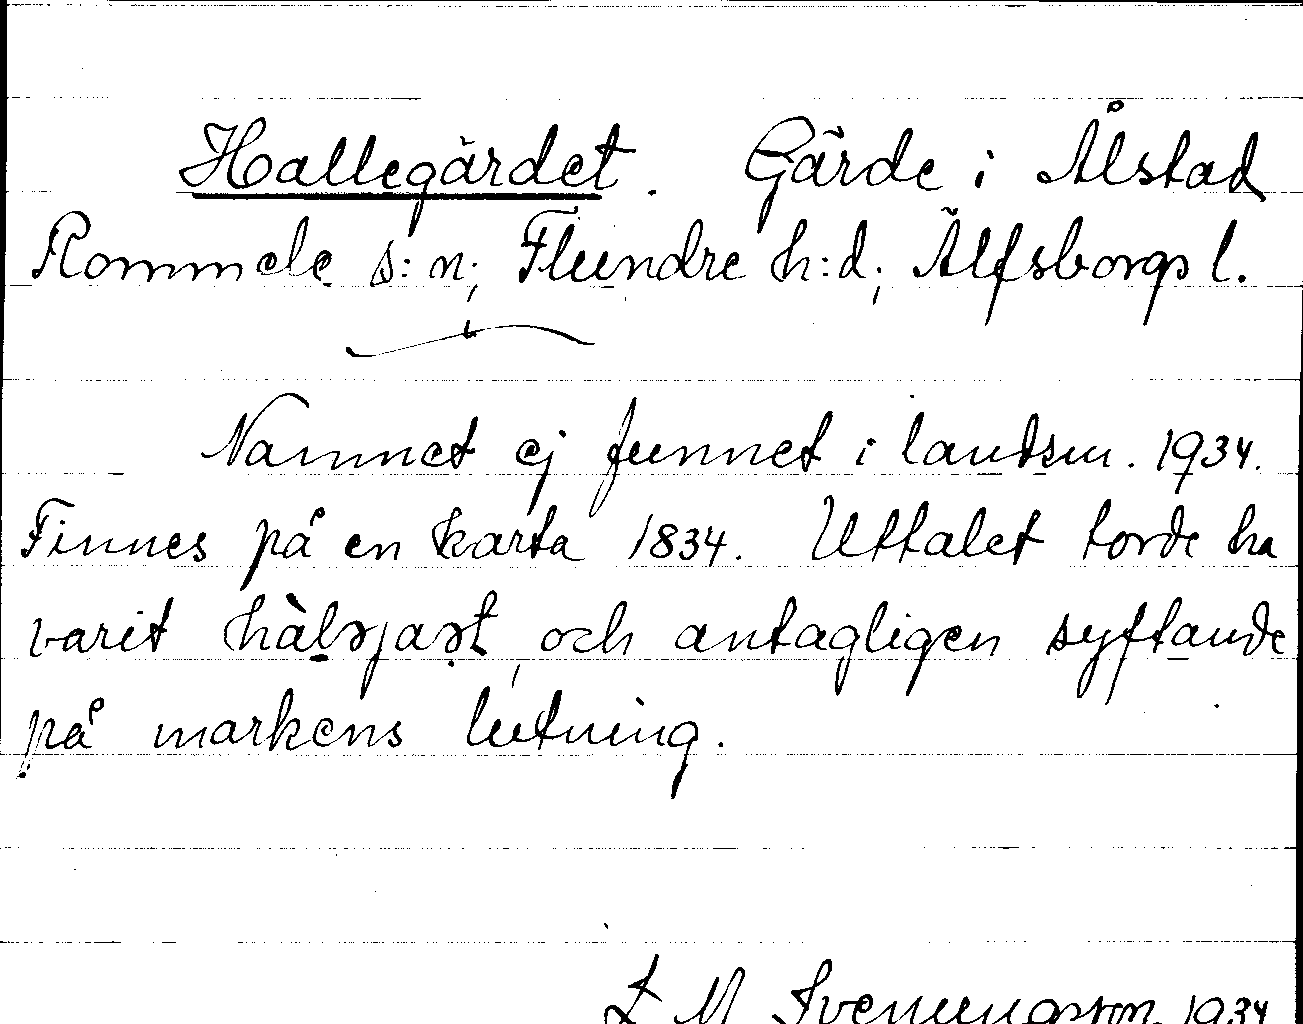 Hallegärdet. Gärde i Ålstad
Rommele s:n; Flundre h:d; Älfsborgs l.
Namnet ej funnet i landsm. 1934.
Finnes på en karta 1834. Uttalet torde ha
varit och antagligen syftande
på markens lutning.
L M Svenungsson 1934